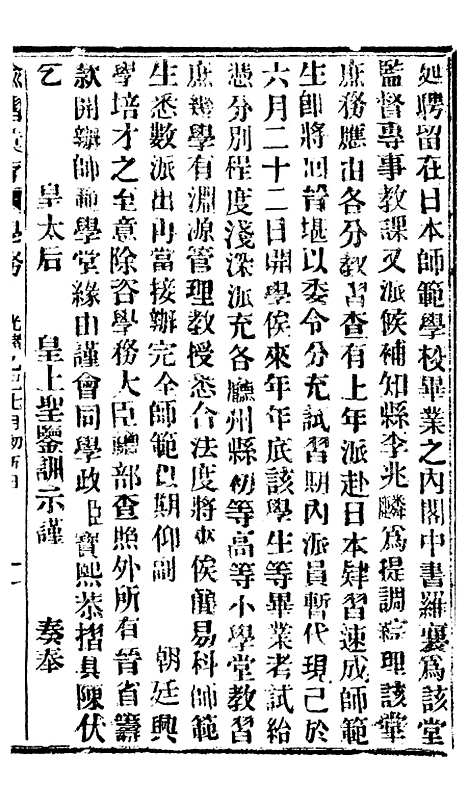 延聘留在日本師範學校畢業之內閣中書羅襄為該堂
監督專事教課又派候補知縣李兆麟為提調綜理該堂
庶務應由各分教習查有上年派赴日本肄習速成師範
生即將回晉堪以委令分充試習期內派員暫代現已於
六月二十二日開學俟來年年底該學生等畢業者試給
憑分別程度淺深派充各廳州縣初等高等小學堂教習
庶幾學有淵源管理教授悉合法度將來俟簡易科師範
生悉數派出再當接辦完全師範以期仰副 朝廷興
學培才之至意除咨學務大臣總部查照外所有晉省籌
款開辦師範學堂緣由謹會同學政臣寶熙恭摺具陳伏
乞 皇太后 皇上聖鑒訓示謹 奏奉
學務 光緒乙巳七月初五日